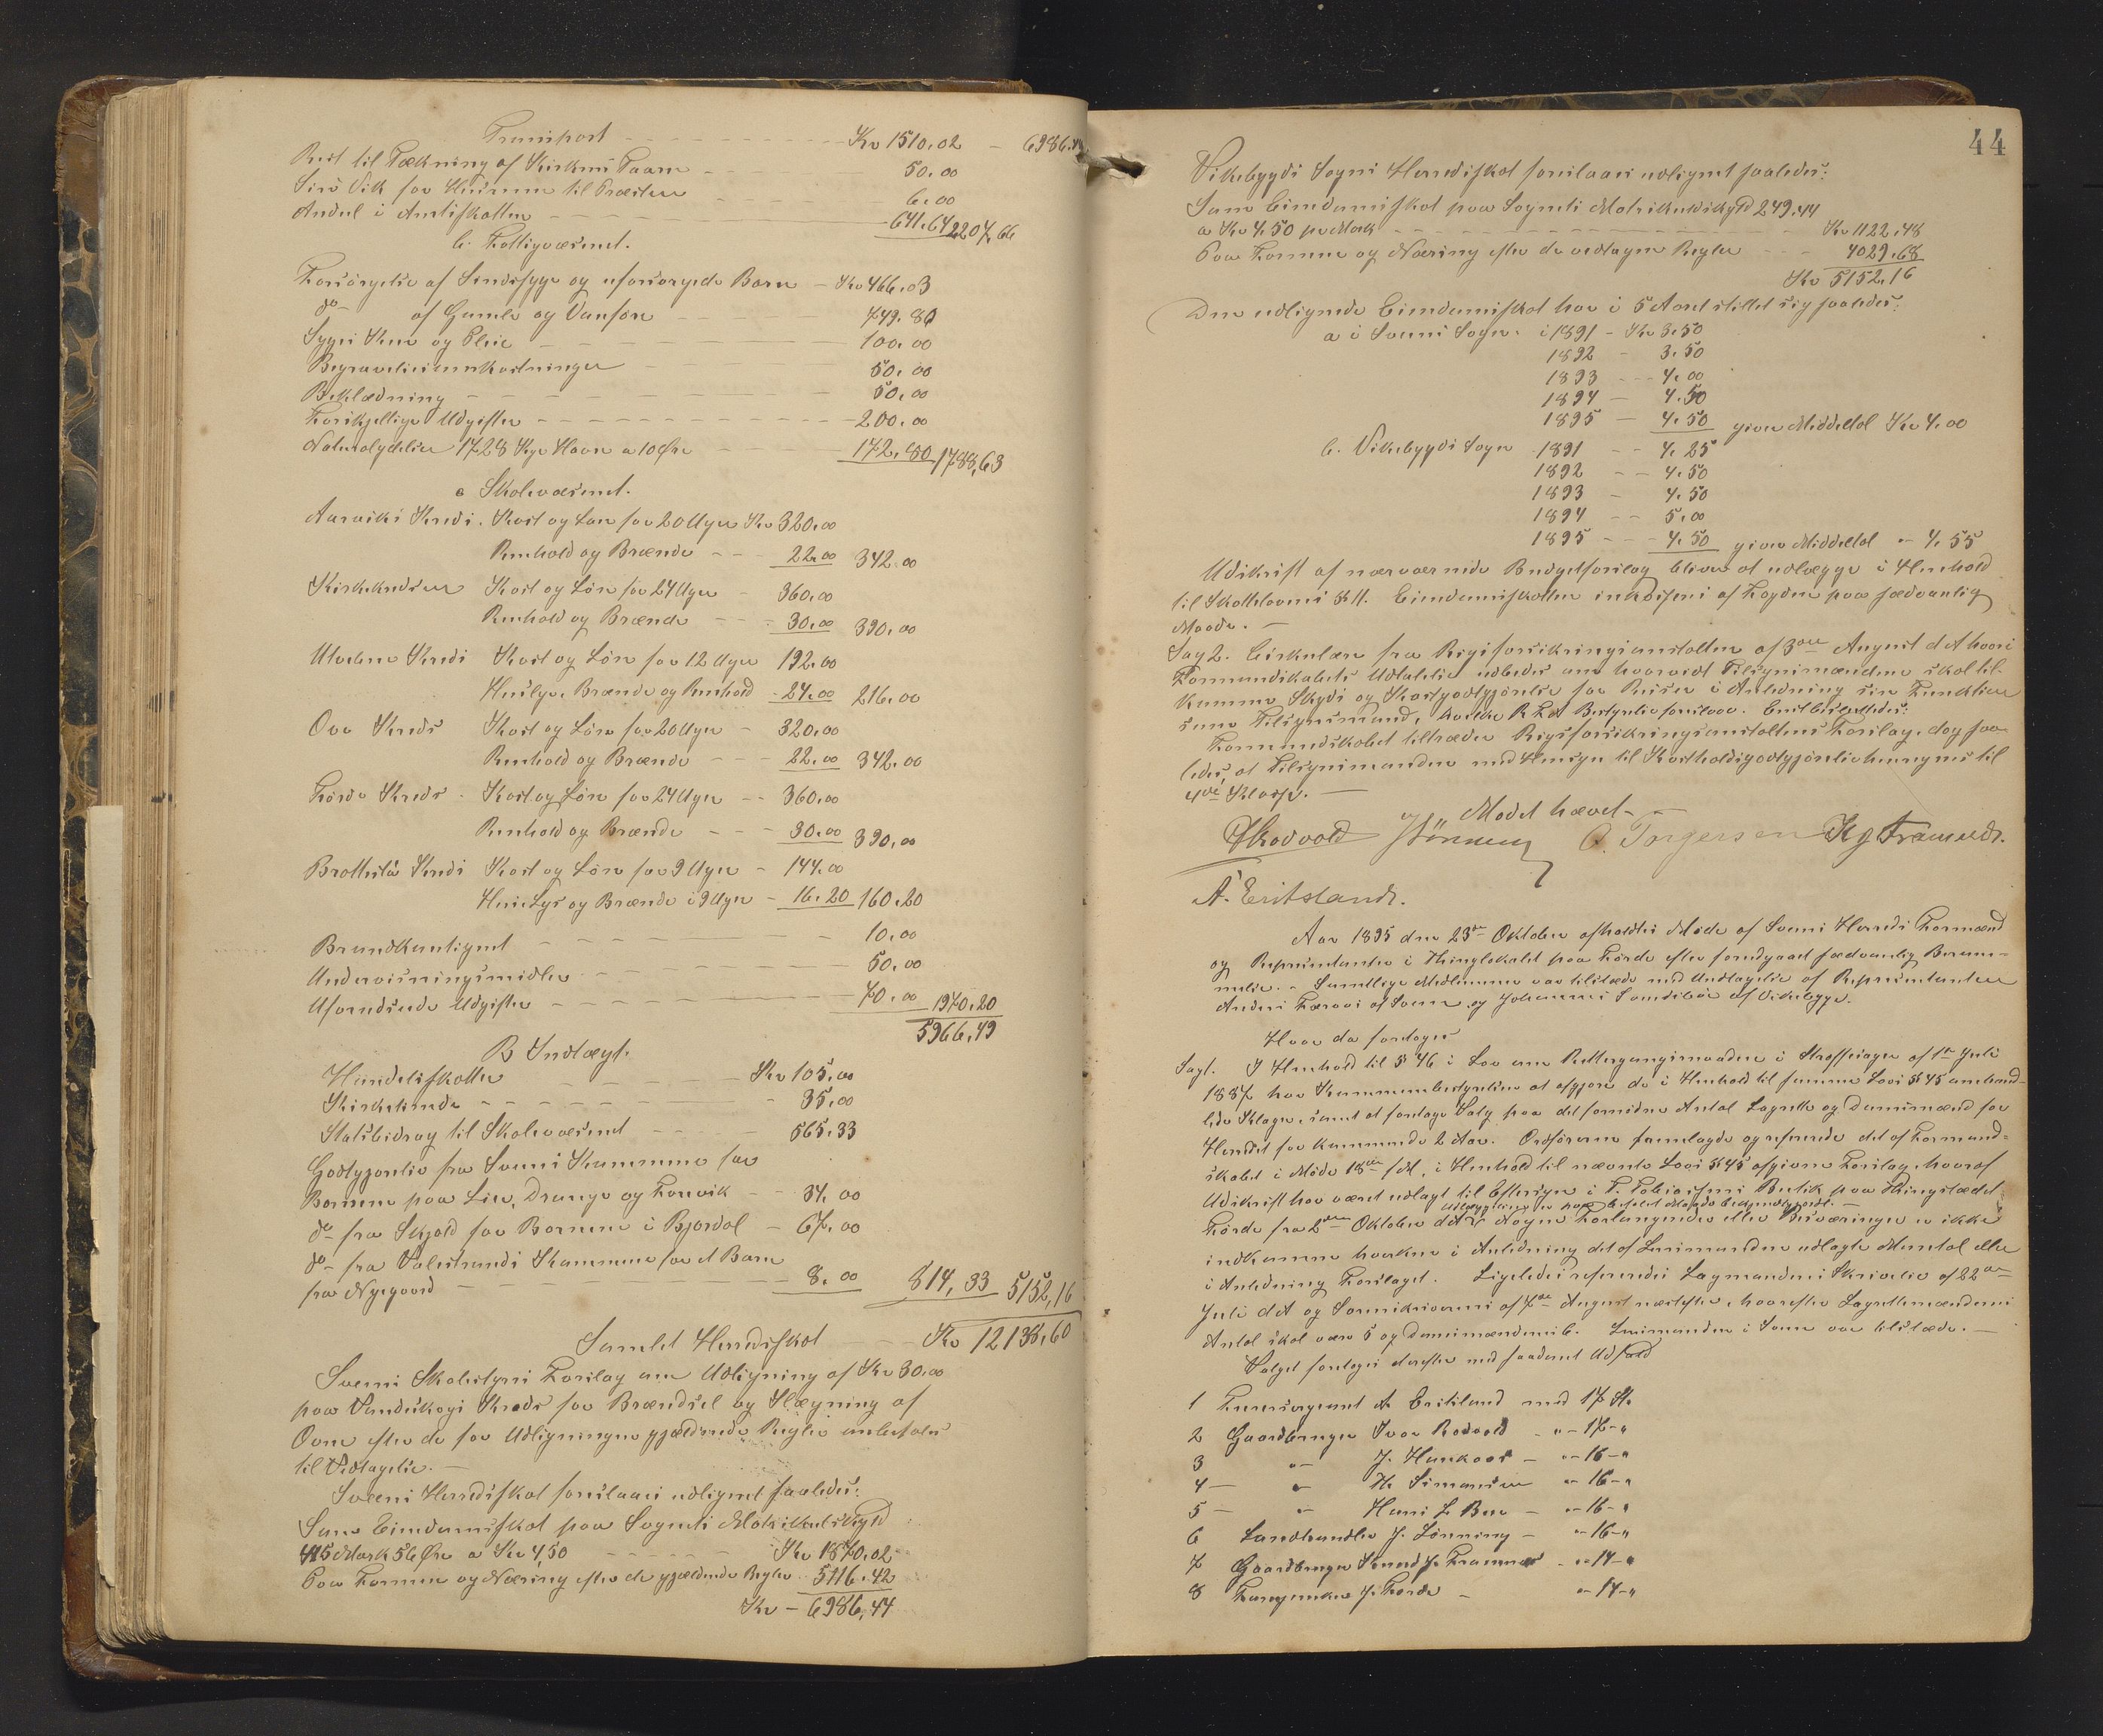 Transport - - - Kr 1510.02 - 6986.44
Rest til Tækning af Kirkens Taarn - - 50.00
Sivs Vik for Husrum til Præsten - - 6.00
Andel i Amtsskatten - - - 641.64 2207.66
b. Fattigvæsenet.
Forsørgelse af Sindssyge og uforsørgede Børn - Kr 466.03
do - af Gamle og Vanføre - - 749.80
Syges Kur og Pleie - - 100.00
Begravelsesomkostninger - - 50.00
Beklædning - - 50.00
Forskjellige Udgifter - - 200.00
Naturalydelser 1728 Kgr Havre a 10 Øre - - 172.80 1788,63
c Skolevæsenet.
Aarviks Kreds. Kost og Løn for 20 Uger Kr 320.00
Renhold og Brænde - - 22.00 342.00
Kirkekredsen Kost og Løn for 24 Uger - 360.00
Renhold og Brænde - - 30.00 390.00
Kreds Kost og Løn for 12 Uger 192.00
Huslye, Brænde og Renhold - 24.00 216.00
Ovr Kreds Kost og Løn for 20 Uger - 320.00
Renhold og Brænde - - 22.00 342.00
Førde Kreds - Kost og Løn for 24 Uger - 360.00
Renhold og Brænde - - 30.00 390.00
Kreds Kost og Løn for 9 Uger - 144.00
Lys og Brænde i 9 Uger - 16.20 160.20
- - 10.00
Undervisningsmidler - - 50.00
Uforudseede Udgifter - - 70.00 1970.20
5966.49
B Indtægt.
Hundeskatten - - Kr 105.00
Kirketiende - - 35.00
Statsbidrag til Skolevæsenet - - 565.33
Godtgjørelse fra Sveens Kommune for
Børnene paa Lier, Drange og - - 34.00
do - fra Skjold for Børnene i Bjordal - 67.00
do - fra Valestrands Kommune for et Barn
fra Nygaard - - 8.00 814,33 5152,16
Samlet Herredsskat - Kr 12138,60
Sveens Skolestyres Forslag om Udligning af Kr 30.00
paa Vandskogs Kreds for Brændsel og Hægning af
Ovne efter de for Udligningen gjældende Regler anbefales
til Vedtagelse. -
Sveens Herredsskat foreslaaes udlignet saaledes:
Som Eiendomsskat paa Sognets Matrikulskyld
415 Mark 56 Øre a Kr 4,50 - - Kr 1870.02
Paa Formue og Næring efter de gjældende Regler - 5116.42
Kr - 6986,44
44
Vikebygds Sogns Herredsskat foreslaaes udlignet saaledes:
Som Eiendomsskat paa Sognets Matrikulskyld 249.44
a Kr 4.50 pr Mark - - Kr 1122.48
Paa Formue og Næring efter de vedtagne Regler - - 4029.68
Kr 5152.16
Den udlignede Eiendomsskat har i 5 Aaret stillet sig saaledes:
a i Sveens Sogn: i 1891 - Kr 3.50
1892 - 3.50
1893 - - 4.00
1894 - 4.50
1895 - 4.50 giver Middeltal Kr 4.00
b. Vikebygds Sogn 1891 - - 4.25
1892 - - 4.50
1893 - 4.50
1894 - - 5.00
1895 - - 4.50 giver Middeltal - 4.55
Udskrift af nærværende Budgetforslag bliver at udlægge i Henhold
til Skattelovens § 11. Eiendomsskatten af Fogden paa sædvanlig
Maade. -
Sag 2. Cirkulære fra Rigsforsikringsanstalten af 3die August d A hvori
Formandskabets Udtalelse udbedes om hvorvidt Tilsynsmændene skal til-
komme Skyds og Kostgodtgjørelse for Reiser i Anledning sin Funktion
som Tilsynsmænd, hvilke R F A Bestyrelse foreslaar. Enst. besluttedes:
Formandskabet tiltræder Rigsforsikringsanstaltens Forslag, dog saa-
ledes, at Tilsynsmanden med Hensyn til Kostholdsgodtgjørelse henregnes til
4de Klasse. -
Mødet hævet -
Skovvold JLønning O. Torgersen K J Framnes.
A. Eritsland.
Aar 1895 den 23de Oktober afholdtes Møde af Sveens Herreds Formænd
og Repræsentanter i Thinglokalet paa Førde efter foregaaet sædvanlig Beram-
melse. - Samtlige Medlemmer var tilstede med Undtagelse af Repræsentanterne
Anders af Sveen og Johannes af Vikebygd.
Hvor da foretoges
Sag 1. I Henhold til § 46 i Lov om Rettergangsmaaden i Straffesager af 1ste Juli
1887 har Kommunebestyrelsen at afgjøre de i Henhold til samme Lovs § 45 anmeld-
te Klager, samt at foretage Valg paa det fornødne Antal Lagrette og Domsmænd for
Herredet for kommende 2 Aar. Ordføreren fremlagde og refererede det af Formand-
skabet i Møde 18de f M, i Henhold til nævnte Lovs § 45 afgivne Forslag, hvoraf
Udskrift har været udlagt til Eftersyn i T. Tobiassens Butik paa Thingstedet
Udlæggelsen er paa befalet Maade bekjendtgjort. -
Førde fra 2den Oktober d A. Nogen Forlangender eller Besværinger er ikke
indkommen hverken i Anledning det af Lensmanden udlagte Mantal eller
i Anledning Forslaget. Ligeledes refereredes Lagmandens Skrivelse af 22de
Juli d A og Sorenskriverens af 7de August næstefter, hvorefter Lagrettemændenes
Antal skal være 5 og Domsmændenes 6. Lensmanden i Sveen var tilstede. -
Valget foretoges derefter med saadant Udfald
1 A Eritsland med 17 St.
2 Gaardbruger Ivar Rodvold - "- 17-"
3 "- J. Haukaas - "- 16-"
4 - "- H. Simonsen "- 16-"
5 - "- Hans L Bue - "- 16-"
6 Landhandler J. Lønning - "- 16-"
7 Gaardbruger Knud J. Framnes - "- 14-"
8 J. Førde - "- 14-"